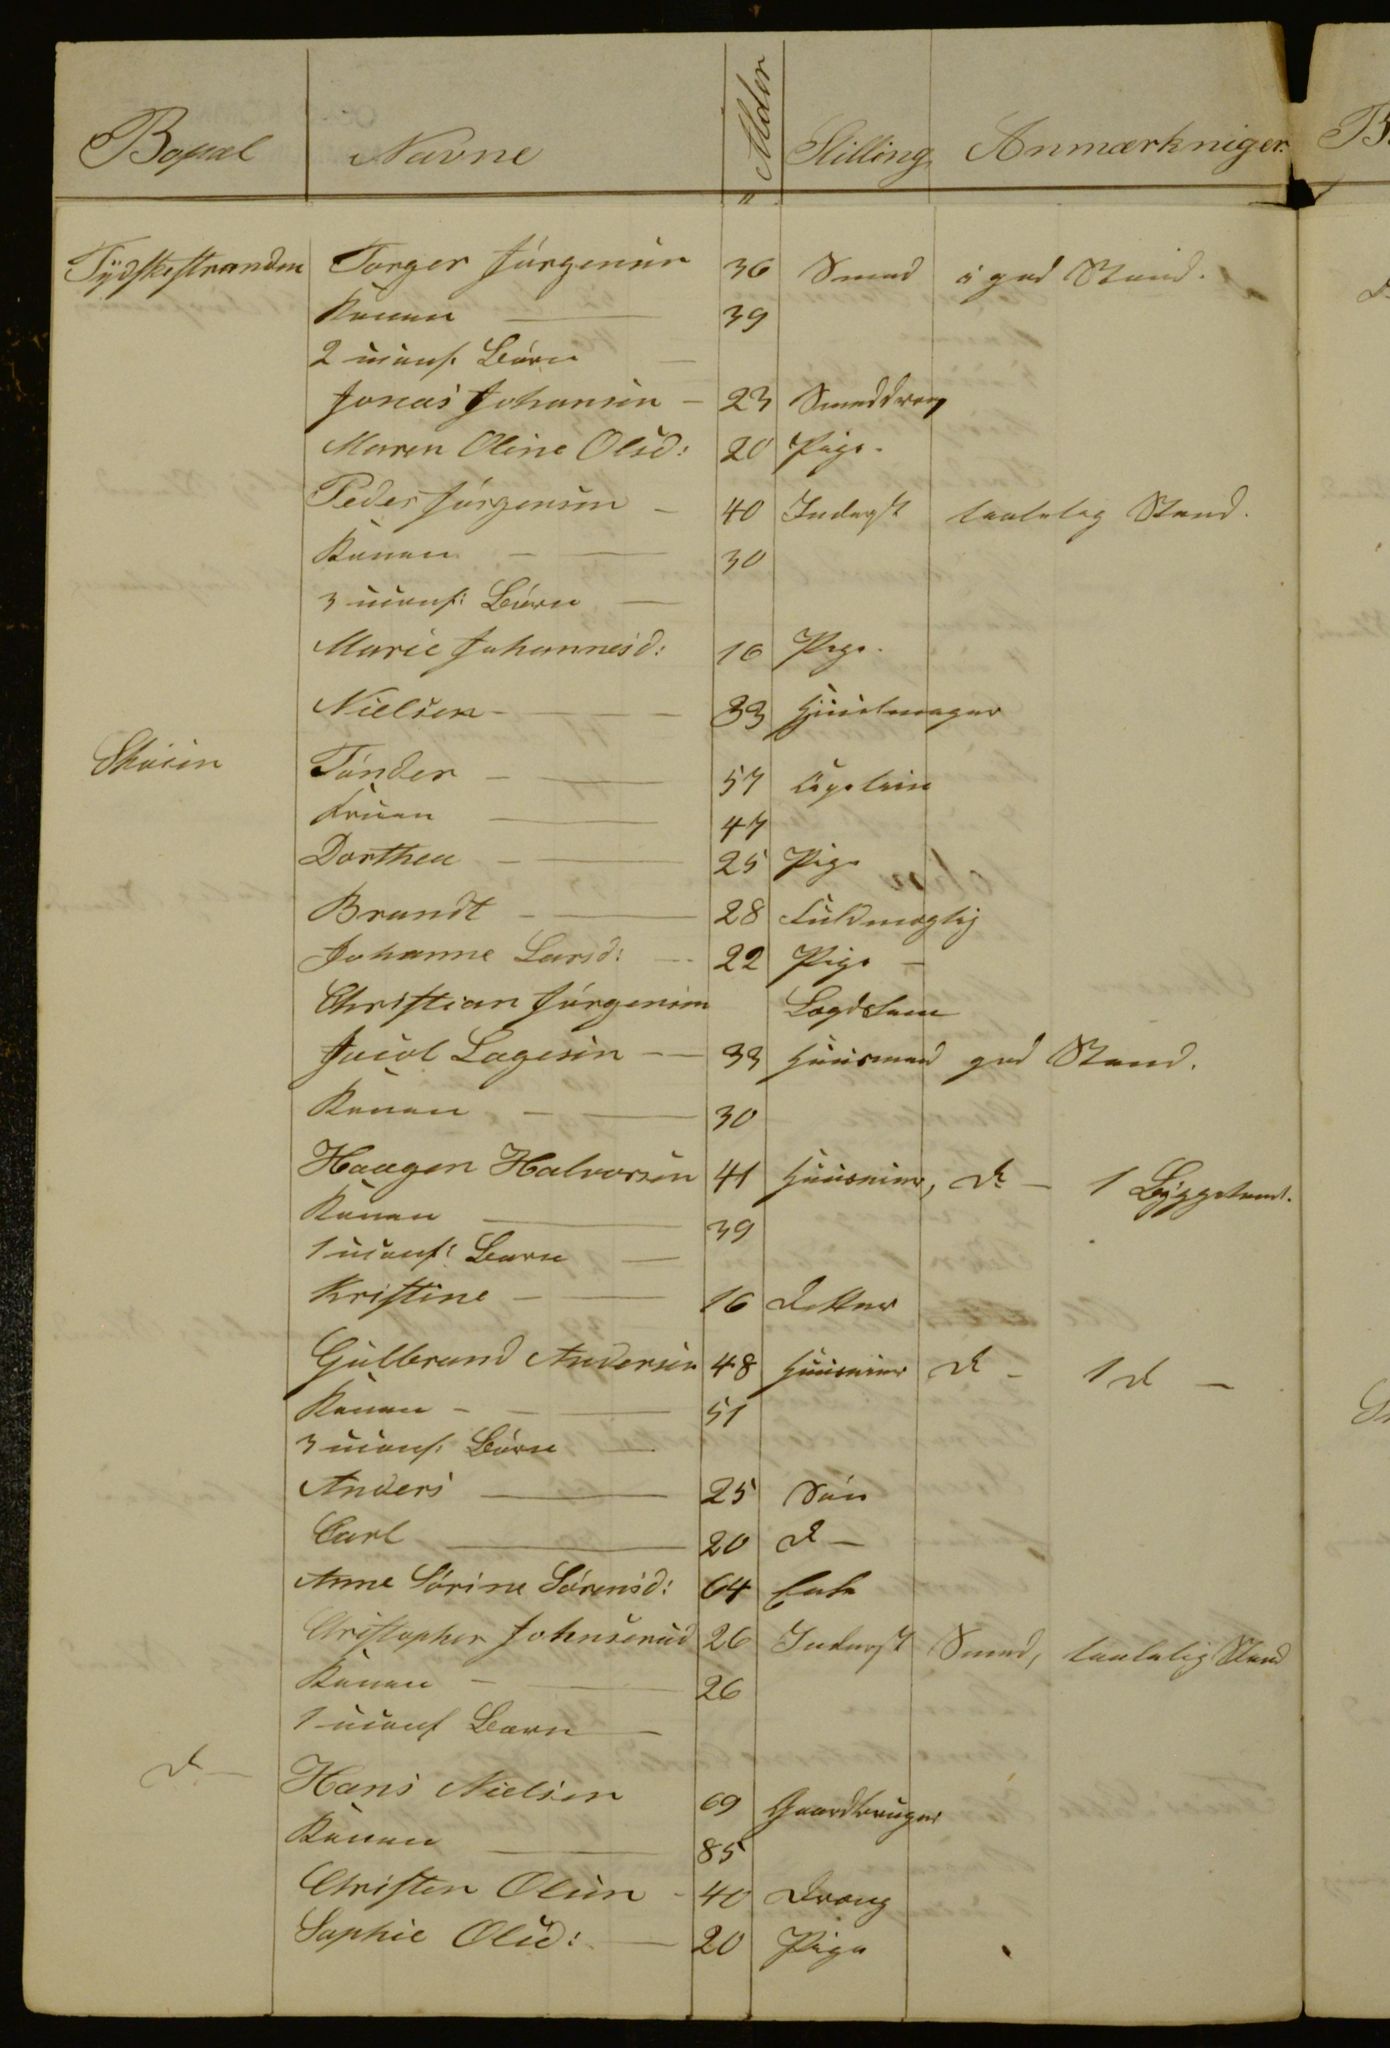 Bopæl Navne Alder Stilling Anmærkniger.
Tydskestranden Torger Jørgensen 36 Smed i god Stand.
Konen 39
2 uconf. Børn
Jonas Johansen 23 Smeddreng
Maren Oline Olsd: 20 Pige.
Peder Jørgensen 40 Inderst taalelig Stand.
Konen 30
3 uconf: Børn
Marie Johannesd: 16 Pige.
Nielsen 33 Hjulmager
Tønder 57 Capitain
Fruen 47
Dorthea 25 Pige
Brandt 28 Fuldmægtig
Johanne Larsd: 22 Pige
Christian Jørgensen Lægdslem
Jacob Lagesen 33 Huusmand god Stand.
Konen 30
Haagen Halvorsen 41 Huusmand, do 1
Konen 39
1 uconf: Barn
Kristine 16 Datter
Gulbrand Andersen 48 Huusmand do 1 do
Konen 51
3 uconf. Børn
Anders 25 Søn
Carl 20 do
Anne Sørine Sørensd: 64 Enke
Christopher Johnserud 26 Inderst Smed, taalelig Stand
Konen 26
1 uconf Barn
do Hans Nielsen 69 Gaardbruger
Konen 85
Christen Olsen 40 Dreng
Sophie Olsd: 20 Pige